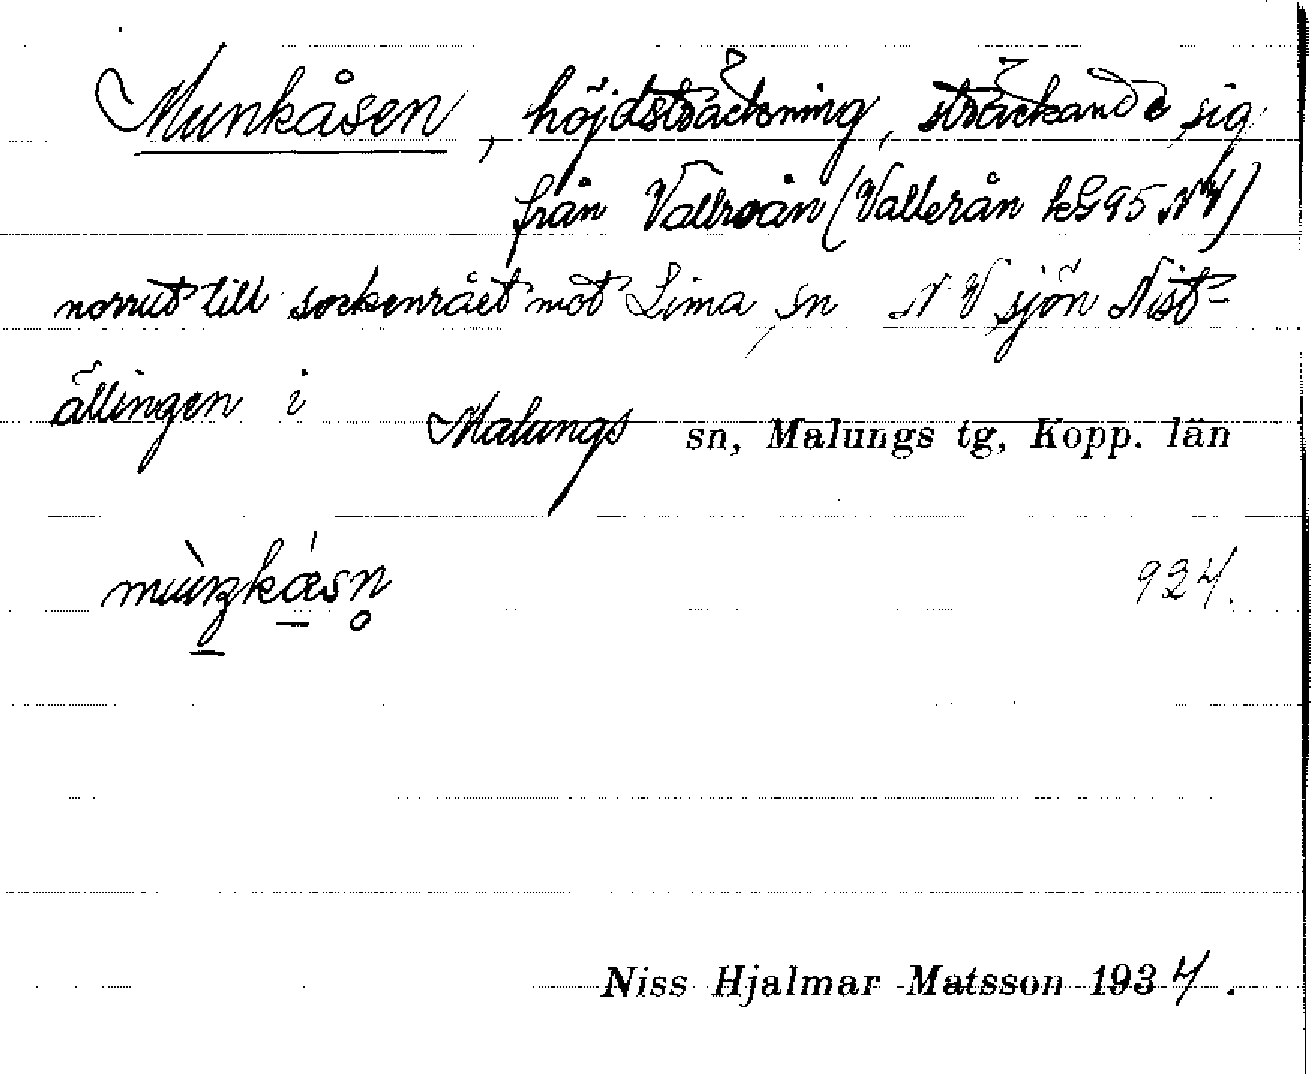 Munkåsen, höjdsträckning, sträckande sig
från Vallroån (Vallerån kG95 NV)
norrut till sockenrået mot Lima sn N V sjön Nist-
ällingen i
Malungs sn, Malungs tg, Kopp. län
924.
Niss Hjalmar Matsson 1934.